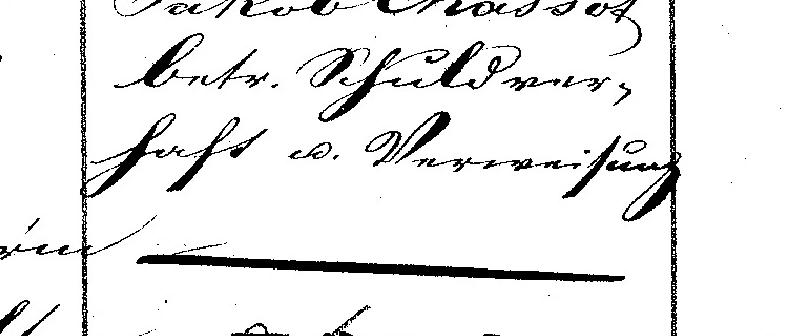 Jakob Massot
betr. Schuldver-
haft u. Verweisung